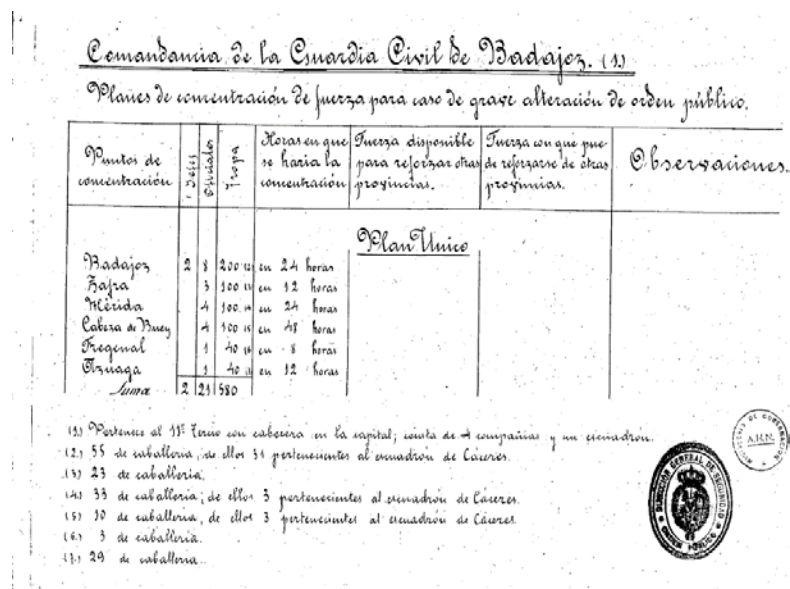 Comandancia de la Guardia Civil de Badajoz. (1)
Planes de concentración de fuerza para caso de grave alteración de orden público.
Puntos de concentración | Jefes | Oficiales | Tropa | Horas en que se haria la concentración | Fuerza disponible para reforzar otras provincias. | Fuerza con que puede reforzarse de otras provincias. | Observaciones.
Plan Unico
Badajoz 2 8 200 (2) en 24 horas
Zafra 3 100 (3) en 12 horas
Mérida 4 100 (4) en 24 horas
Cabeza de Buey 4 100 (5) en 48 horas
Fregenal 1 40 (6) en 8 horas
Azuaga 1 40 (7) en 12 horas
Suma 2 21 580
(1) Pertenece al 11º Tercio con cabecera en la capital; consta de 4 compañias y un escuadrón.
(2) 55 de caballeria, de ellos 31 pertenecientes al escuadrón de Cáceres.
(3) 23 de caballeria.
(4) 33 de caballeria; de ellos 3 pertenecientes al escuadrón de Cáceres.
(5) 10 de caballeria, de ellos 3 pertenecientes al escuadrón de Cáceres.
(6) 3 de caballeria.
(7) 29 de caballeria.
DIRECCIÓN GENERAL DE SEGURIDAD
ORDEN PÚBLICO
A.H.N.